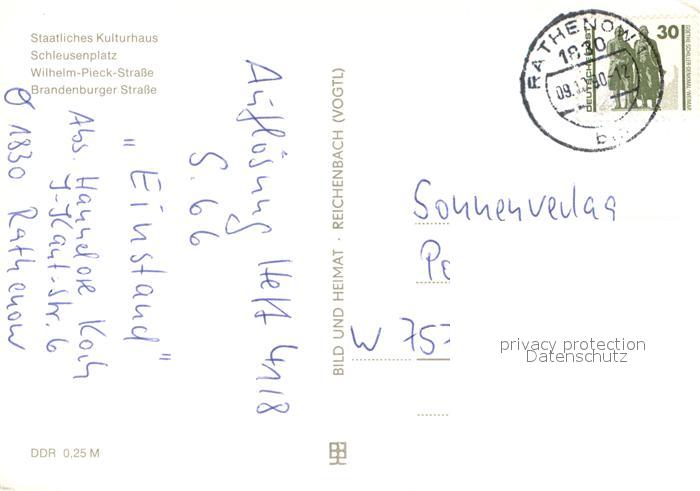 Staatliches Kulturhaus
Schleusenplatz
Wilhelm-Pieck-Straße
Brandenburger Straße
Auflösung Heft 41/8
S. 66
"Einstand"
Abs. Hannelore Koch
J.-Kant-str. 6
O 1830 Rathenow
DDR 0,25 M
BILD UND HEIMAT · REICHENBACH (VOGTL)
RATHENOW
1830
30
DEUTSCHE POST
GOETHE-SCHILLER-DENKMAL, WEIMAR
Sonnenverlag
W 757
privacy protection
Datenschutz